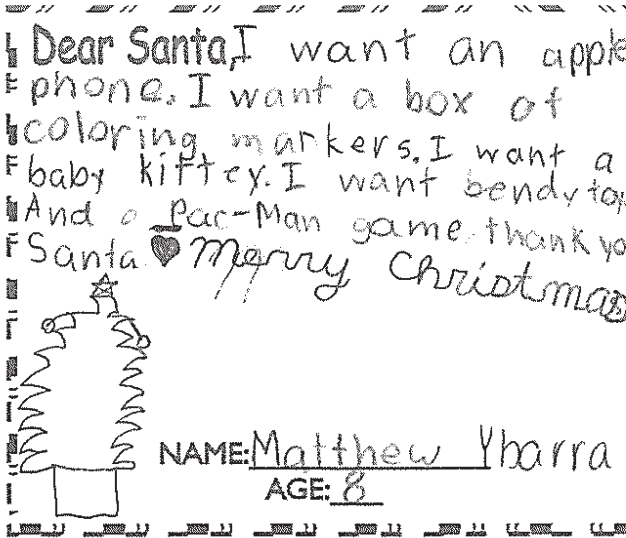 Dear Santa, I want an apple
phone. I want a box of
coloring markers. I want a
baby kittey. I want bendy toy
And a Pac-Man game. thank yo
Santa ♥ Merry Christmas
NAME: Matthew Ybarra
AGE: 8